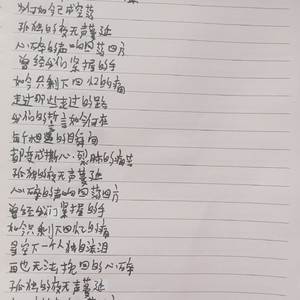 别如今已成空荡
孤独的夜无声蔓延
心碎的声响回荡四方
曾经我们紧握的手
如今只剩下回忆的痛
走过那些走过的路
我们的誓言如今何在
每个相遇的瞬间
都变成撕心裂肺的痛苦
孤独的夜无声蔓延
心碎的声响回荡四方
曾经我们紧握的手
如今只剩下回忆的痛
星空下一个人独自流泪
再也无法挽回的心碎
孤独的夜无声蔓延